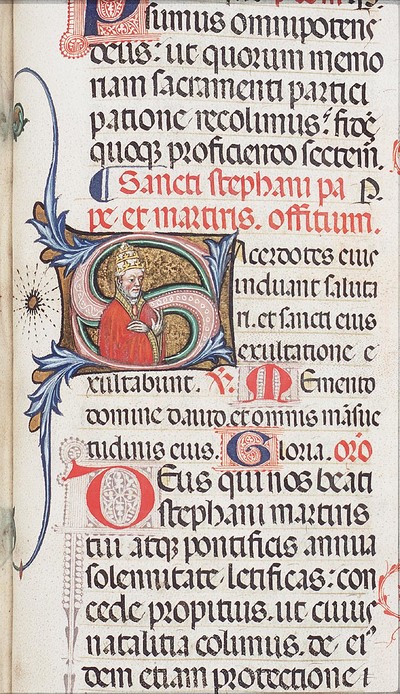 Presumus omnipotens
deus: ut quorum memo
riam sacramenti partici
patione recolimus: fidē
quoqꝫ proficiendo sectem̄.
Sancti stephani pa P.
pe et martiris. offitium.
Sacerdotes eius
induant saluta
ri. et sancti eius
exultatione e
xultabunt. V. Memento
domine dauid. et omnis māsue
tudinis eius. Gloria. orō
Deus qui nos beati
stephani martiris
tui atqꝫ pontificis annua
solemnitate letificas: con
cede propitius. ut cuius
natalitia colimus. de ei
dem etiam protectione